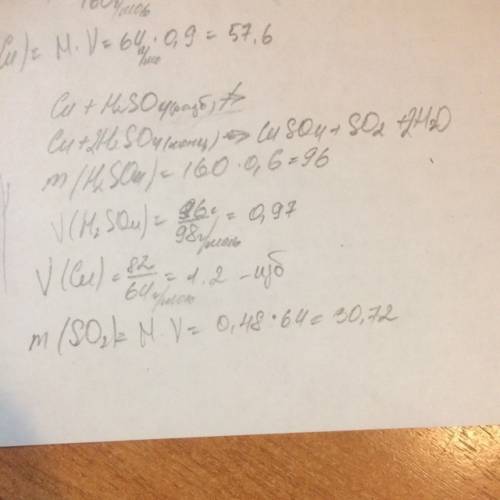 160 г/моль
Cu)= M·V= 64 г/мо·0,9 = 57,6
Cu + H2SO4(разб) ≠>
Cu+2H2SO4(конц) => CuSO4 + SO2 + 2H2O
m(H2SO4)= 160·0,6=96
V(H2SO4)= 96г/98г/моль = 0,97
V(Cu)= 82/64г/моль = 1.2 - изб
m(SO2)= M·V= 0,48·64= 30,72